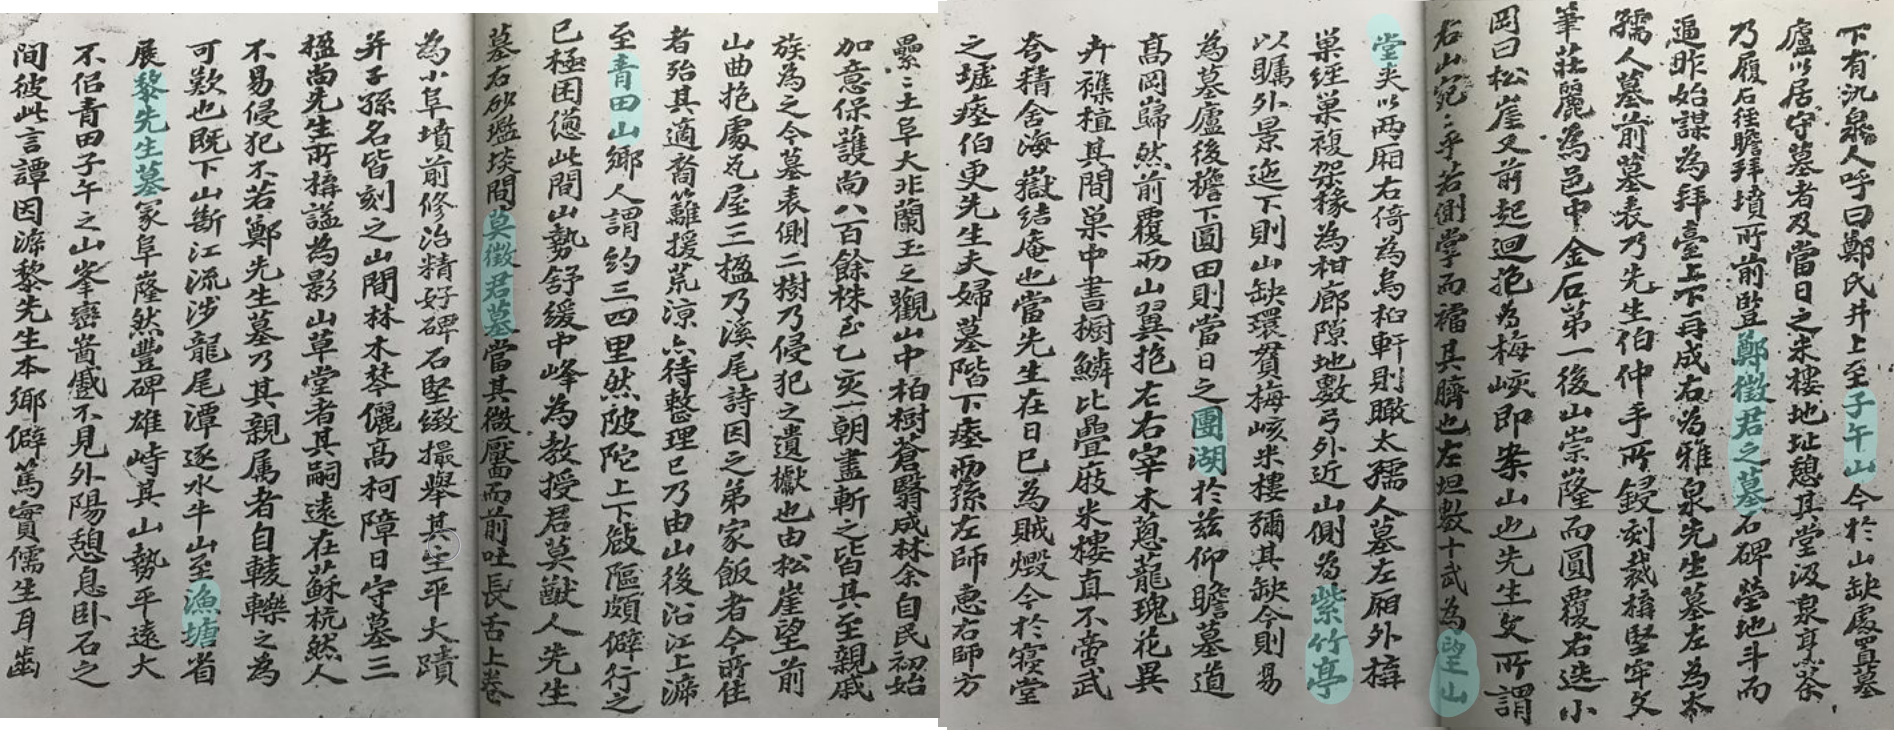 下有氿泉人呼曰鄭氏井上至子午山今於山缺處置墓
廬以居守墓者及當日之米樓地址憩其堂汲泉烹茶
乃履石徑瞻拜墳所前豎鄭徵君之墓石碑塋地斗而
逼昨始謀為拜臺上下再成右為雅泉先生墓左為太
孺人墓前墓表乃先生伯仲手所鋟刻裁樹堅牢文
筆莊麗為邑中金石第一後山崇隆而圓覆右迭小
岡曰松崖又前起迴抱為梅峽即案山也先生文所謂
右山宛宛乎若側掌而襠其臍也左坦數十武為望山
堂夾以兩厢右倚為烏桕軒則瞰太孺人墓左厢外構
巢經巢複架椽為柑廊隙地數弓外近山側為紫竹亭
以矚外景迤下則山缺環貫梅峐米樓彌其缺今則易
為墓廬後檐下圓田則當日之團湖於兹仰瞻墓道
高岡巋然前覆兩山翼抱左右宰木蔥蘢瑰花異
卉襍植其間巢中書櫥鱗比疊庪米樓直不啻武
夸精舍海嶽結庵也當先生在日已為賊燬今於寢堂
之墟瘞伯更先生夫婦墓階下瘞兩孫左師惠右師方
纍纍土阜大非蘭玉之觀山中柏樹蒼翳成林余自民初始
加意保護尚八百餘株至乙亥一朝盡斬之皆其至親戚
族為之今墓表側二樹乃侵犯之遺孽也由松崖望前
山曲抱處瓦屋三楹乃溪尾詩因之弟家飯者今所住
者殆其適裔籬援荒涼亦待整理已乃由山後沿江上游
至青田山鄉人謂約三四里然陂陀上下敧嶇頗僻行之
已極困憊此間山勢舒緩中峰為教授君莫猷人先生
墓右砂壒埮間莫徵君墓當其微靨而前吐長舌上卷
為小阜墳前修治精好碑石堅緻撮舉其生平大蹟
并子孫名皆刻之山間林木棽儷高柯障日守墓三
楹尚先生所構謚為影山草堂者其嗣遠在蘇杭然人
不易侵犯不若鄭先生墓乃其親属者自輘轢之為
可歎也既下山斷江流涉龍尾潭逐水牛山至漁塘省
展黎先生墓冢阜隆然豐碑雄峙其山勢平遠大
不侣青田子午之山峯巒崷巇不見外陽憩息卧石之
間彼此言譚因游黎先生本鄉僻篤實儒生耳齒